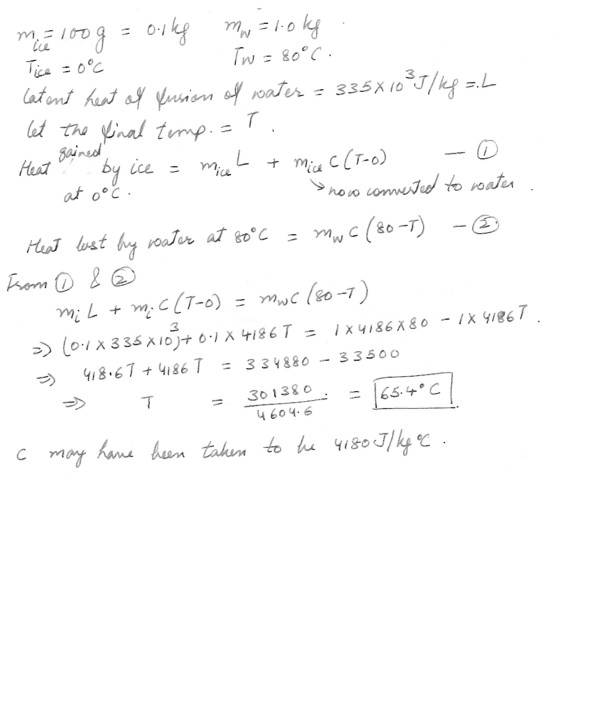 m_ice = 100 g = 0.1 kg   m_w = 1.0 kg.
T_ice = 0°C   T_W = 80°C.
Latent heat of fusion of water = 335 × 10³ J/kg = L
let the final temp. = T.
Heat gained by ice = m_ice L + m_ice C (T-0) — ①
at 0°C.   ↳ now converted to water.
Heat lost by water at 80°C = m_w C (80-T) — ②
From ① & ②
m_i L + m_i C (T-0) = m_w C (80-T)
⇒ (0.1 × 335 × 10³) + 0.1 × 4186 T = 1 × 4186 × 80 - 1 × 4186 T.
⇒ 418.6 T + 4186 T = 334880 - 33500
⇒ T = 301380 / 4604.6 = 65.4°C
C may have been taken to be 4180 J/kg °C.